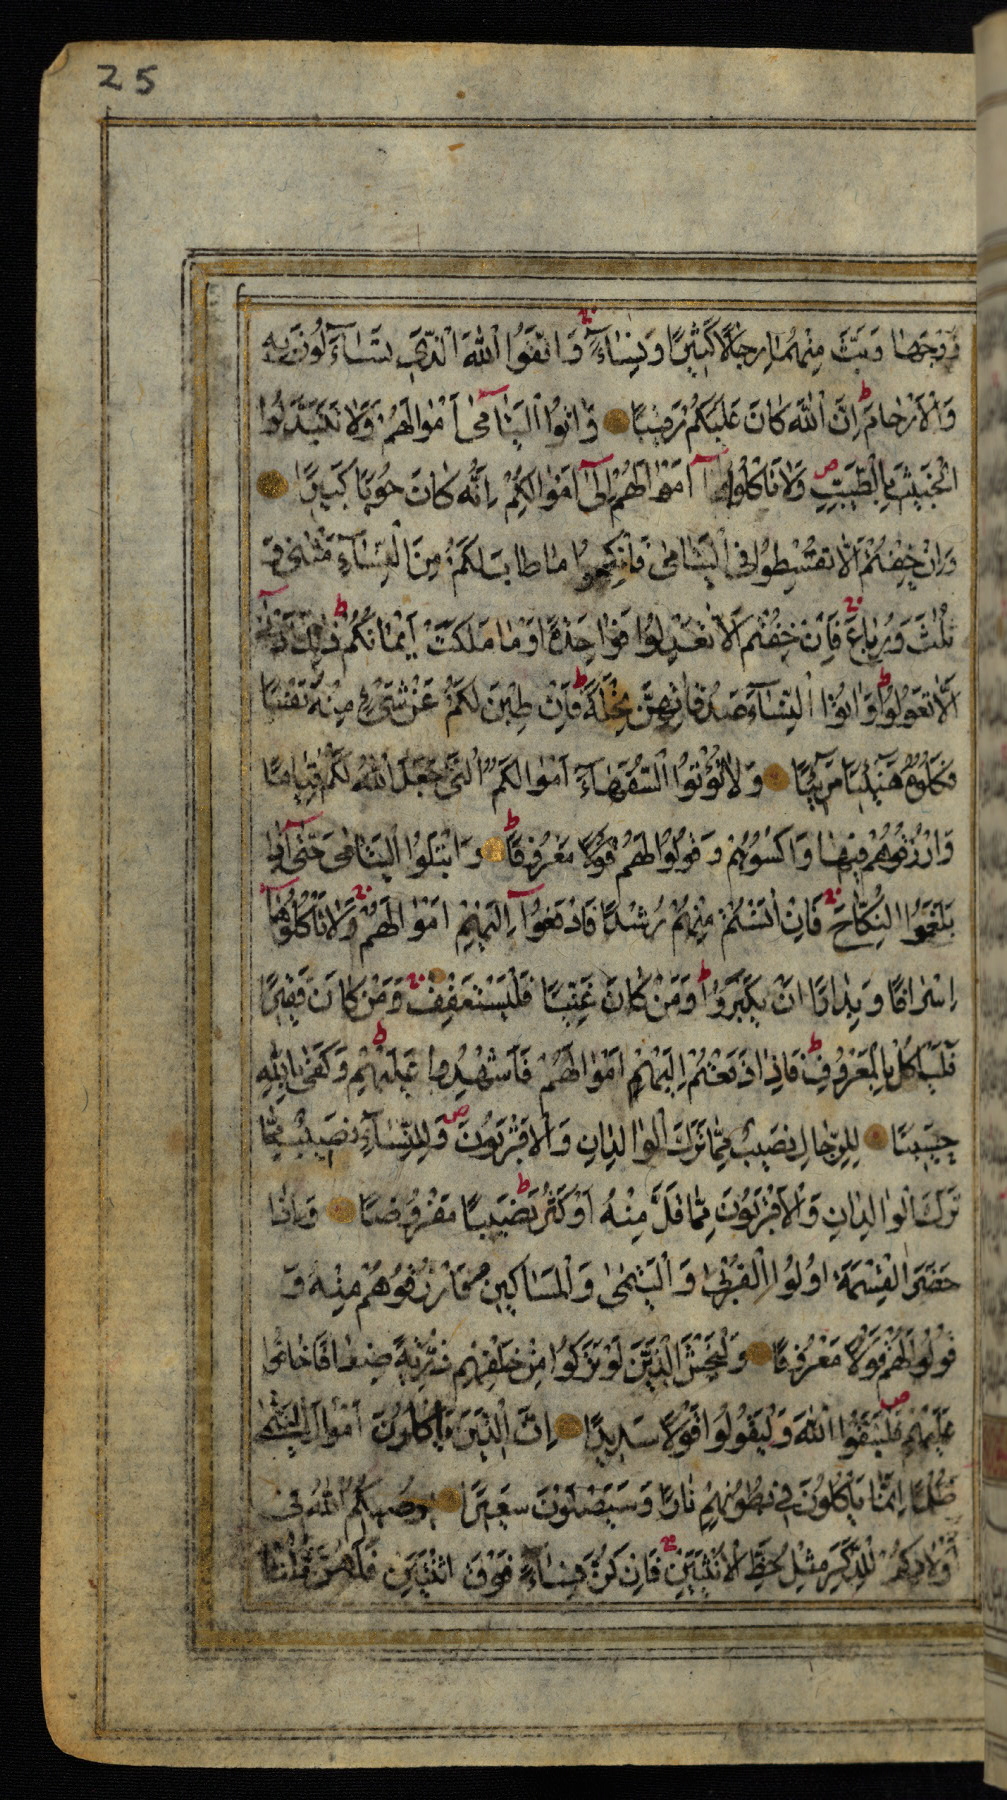 25
زَوْجَهَا وَبَثَّ مِنْهُمَا رِجَالًا كَثِيرًا وَنِسَاءً ۚ وَاتَّقُوا اللَّهَ الَّذِي تَسَاءَلُونَ بِهِ
وَالْأَرْحَامَ ط إِنَّ اللَّهَ كَانَ عَلَيْكُمْ رَقِيبًا وَآتُوا الْيَتَامَى أَمْوَالَهُمْ وَلَا تَتَبَدَّلُوا
الْخَبِيثَ بِالطَّيِّبِ ص وَلَا تَأْكُلُوا أَمْوَالَهُمْ إِلَى أَمْوَالِكُمْ إِنَّهُ كَانَ حُوبًا كَبِيرًا
وَإِنْ خِفْتُمْ أَلَّا تُقْسِطُوا فِي الْيَتَامَى فَانْكِحُوا مَا طَابَ لَكُمْ مِنَ النِّسَاءِ مَثْنَى وَ
ثُلَثَ وَرُبَاعَ ۚ فَإِنْ خِفْتُمْ أَلَّا تَعْدِلُوا فَوَاحِدَةً أَوْ مَا مَلَكَتْ أَيْمَانُكُمْ ط ذَلِكَ أَدْنَى
أَلَّا تَعُولُوا ط وَآتُوا النِّسَاءَ صَدُقَاتِهِنَّ نِحْلَةً ط فَإِنْ طِبْنَ لَكُمْ عَنْ شَيْءٍ مِنْهُ نَفْسًا
فَكُلُوهُ هَنِيئًا مَرِيئًا وَلَا تُؤْتُوا السُّفَهَاءَ أَمْوَالَكُمُ الَّتِي جَعَلَ اللَّهُ لَكُمْ قِيَامًا
وَارْزُقُوهُمْ فِيهَا وَاكْسُوهُمْ وَقُولُوا لَهُمْ قَوْلًا مَعْرُوفًا ط وَابْتَلُوا الْيَتَامَى حَتَّى إِذَا
بَلَغُوا النِّكَاحَ ۚ فَإِنْ آنَسْتُمْ مِنْهُمْ رُشْدًا فَادْفَعُوا إِلَيْهِمْ أَمْوَالَهُمْ ۚ وَلَا تَأْكُلُوهَا
إِسْرَافًا وَبِدَارًا أَنْ يَكْبَرُوا ط وَمَنْ كَانَ غَنِيًّا فَلْيَسْتَعْفِفْ ۚ وَمَنْ كَانَ فَقِيرًا
فَلْيَأْكُلْ بِالْمَعْرُوفِ ط فَإِذَا دَفَعْتُمْ إِلَيْهِمْ أَمْوَالَهُمْ فَأَشْهِدُوا عَلَيْهِمْ ط وَكَفَى بِاللَّهِ
حَسِيبًا لِلرِّجَالِ نَصِيبٌ مِمَّا تَرَكَ الْوَالِدَانِ وَالْأَقْرَبُونَ ص وَلِلنِّسَاءِ نَصِيبٌ مِمَّا
تَرَكَ الْوَالِدَانِ وَالْأَقْرَبُونَ مِمَّا قَلَّ مِنْهُ أَوْ كَثُرَ ط نَصِيبًا مَفْرُوضًا وَإِذَا
حَضَرَ الْقِسْمَةَ أُولُوا الْقُرْبَى وَالْيَتَمَى وَالْمَسَاكِينُ فَارْزُقُوهُمْ مِنْهُ وَ
قُولُوا لَهُمْ قَوْلًا مَعْرُوفًا وَلْيَخْشَ الَّذِينَ لَوْ تَرَكُوا مِنْ خَلْفِهِمْ ذُرِّيَّةً ضِعَافًا خَافُوا
عَلَيْهِمْ ص فَلْيَتَّقُوا اللَّهَ وَلْيَقُولُوا قَوْلًا سَدِيدًا إِنَّ الَّذِينَ يَأْكُلُونَ أَمْوَالَ الْيَتَمَى
ظُلْمًا إِنَّمَا يَأْكُلُونَ فِي بُطُونِهِمْ نَارًا وَسَيَصْلَوْنَ سَعِيرًا يُوصِيكُمُ اللَّهُ فِي
أَوْلَادِكُمْ لِلذَّكَرِ مِثْلُ حَظِّ الْأُنْثَيَيْنِ ۚ فَإِنْ كُنَّ نِسَاءً فَوْقَ اثْنَتَيْنِ فَلَهُنَّ ثُلُثَا